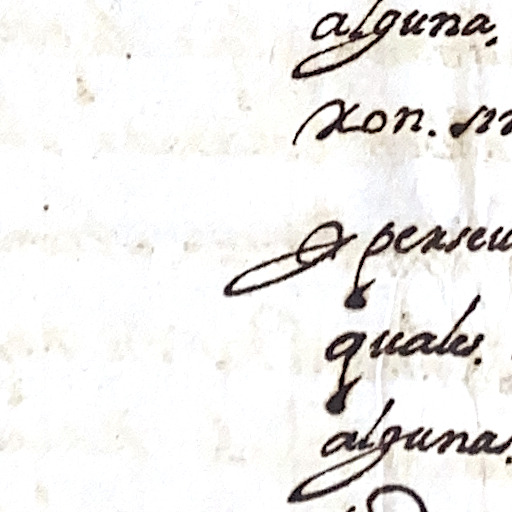 alguna,
xon. sin
perseu
quales.
algunas.